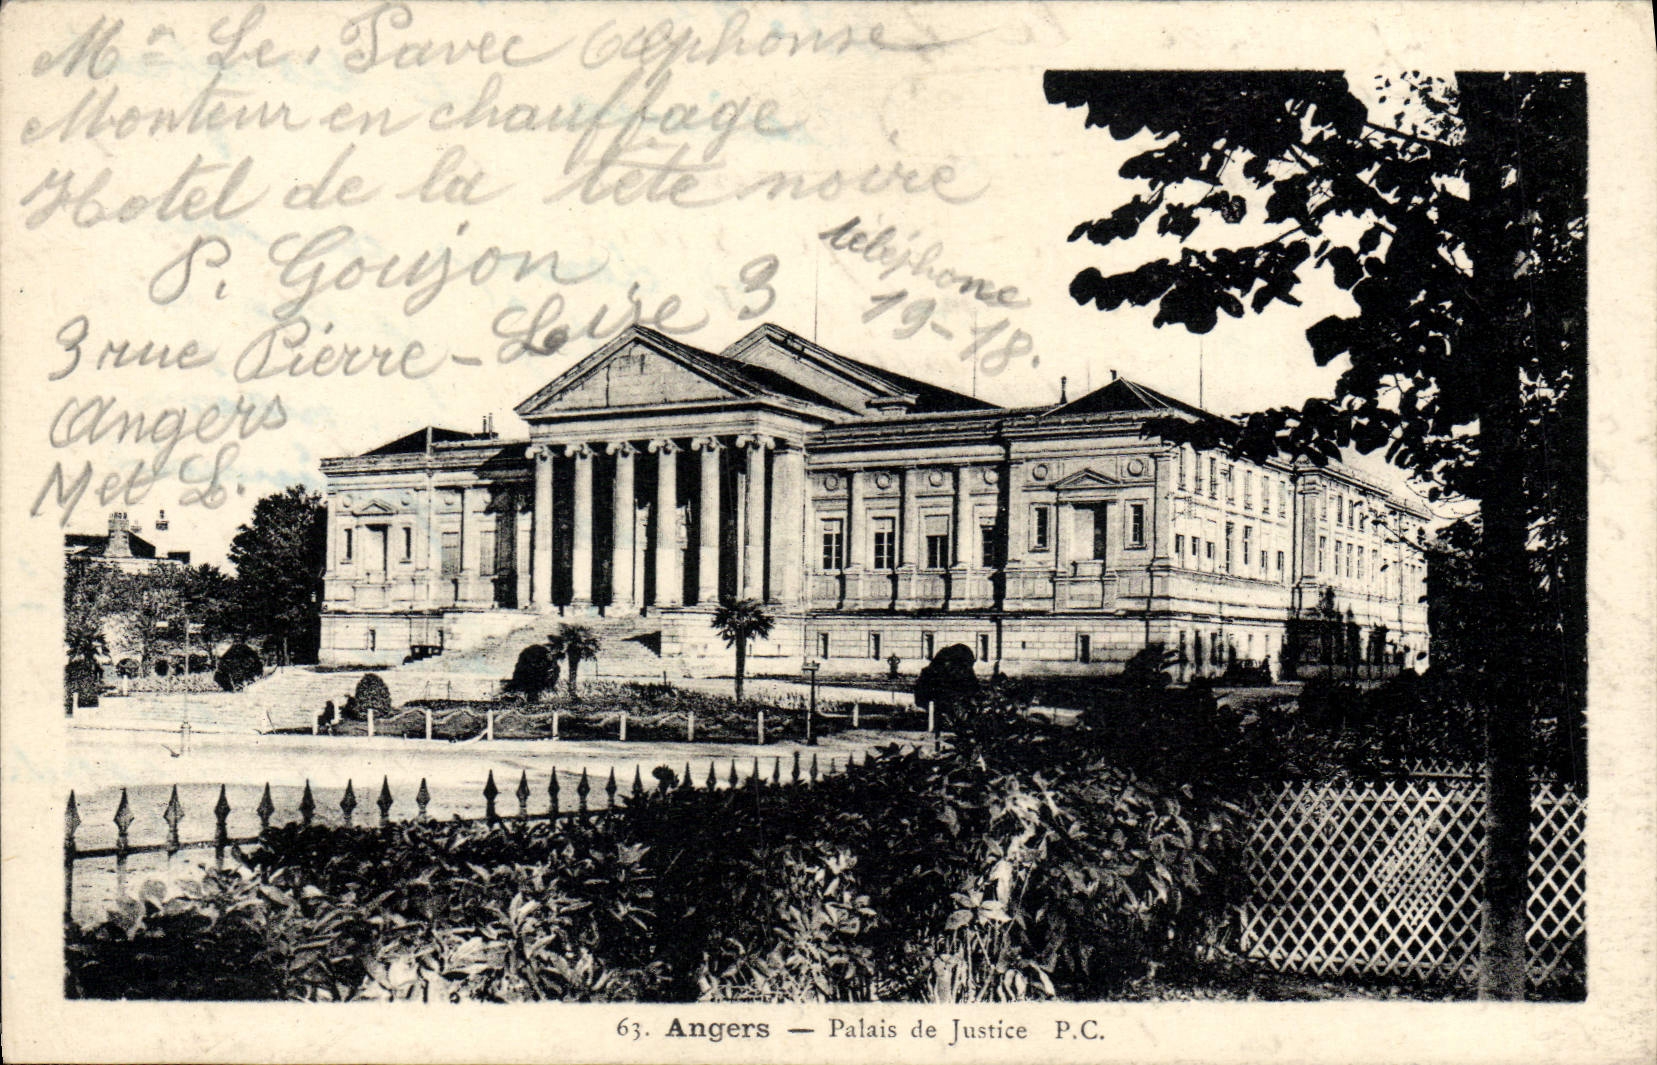 Mr Le Pavec Alphonse
Monteur en chauffage
Hotel de la tête noire
P. Goujon
3 rue Pierre-Loise 3
Angers
M et L.
téléphone
19-18.
63. Angers — Palais de Justice P.C.